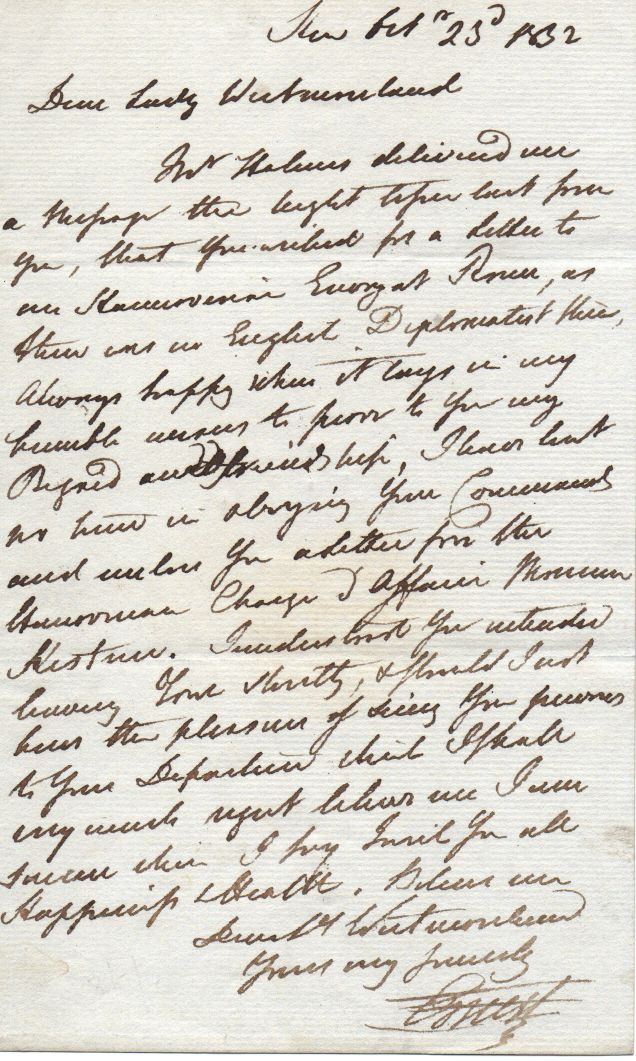 Kew Octr 23d 1832
Dear Lady Westmoreland
Mr Holmes delivered me
a Message the night before last from
You, that You wished for a Letter to
an Hannoverian Envoy at Rome, as
there was no English Diplomatist there,
Always happy when it lays in my
humble means to prove to You my
Regard and friendship, I have lost
no time in obeying Your Commands
and inclose You a letter for the
Hannoverian Charge d Affair Monsieur
Kestner. I understood You intended
leaving Town shortly, & should I not
have the pleasure of seeing You previous
to Your Departure which I shall
very much regret believe me I am
sincere when I say I wish You all
Happiness & Health. Believe me
Dear Ly Westmoreland
Yours very sincerely
Ernest